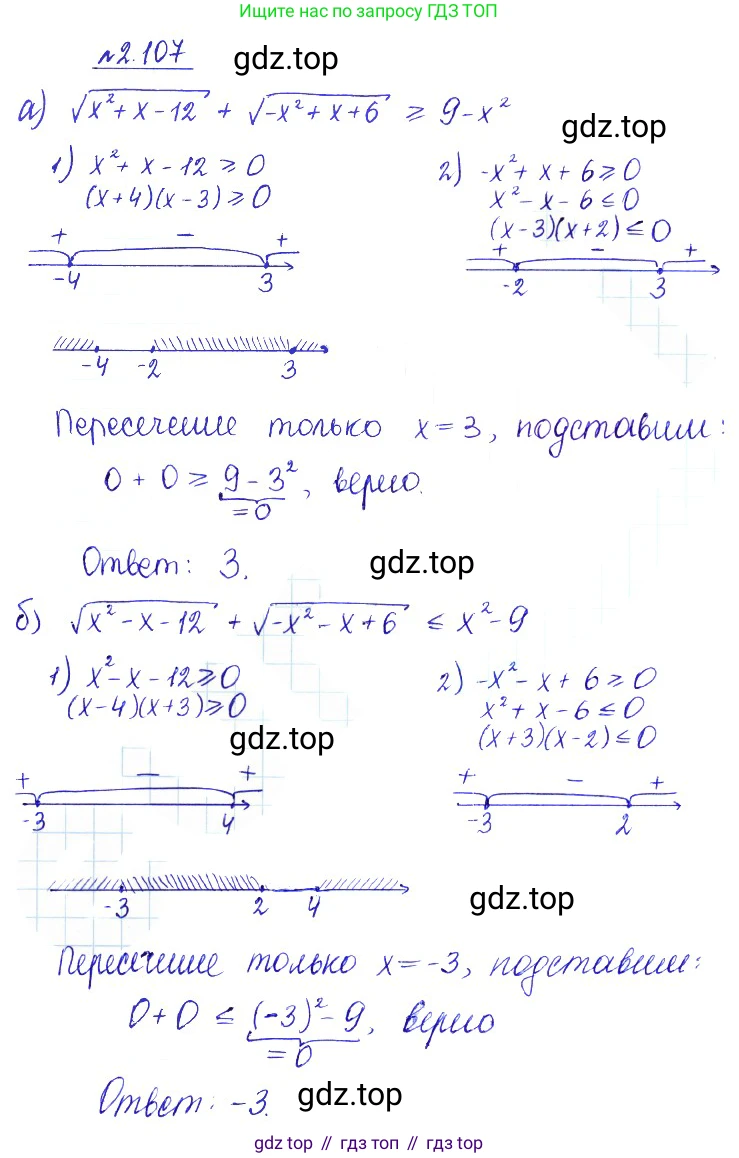 Ищите нас по запросу ГДЗ ТОП
№2.107 gdz.top
а) √(x²+x-12) + √(-x²+x+6) ≥ 9-x²
gdz.top
1) x²+x-12≥0 2) -x²+x+6≥0
(x+4)(x-3)≥0 x²-x-6≤0
(x-3)(x+2)≤0
+ - + + - +
-4 3 -2 3
-4 -2 3
Пересечение только x=3, подставим:
0+0≥9-3², верно.
=0
Ответ: 3. gdz.top
б) √(x²-x-12) + √(-x²-x+6) ≤ x²-9
1) x²-x-12≥0 2) -x²-x+6≥0
(x-4)(x+3)≥0 x²+x-6≤0
gdz.top (x+3)(x-2)≤0
+ - + + - +
-3 4 -3 2
-3 2 4 gdz.top
Пересечение только x=-3, подставим:
0+0≤(-3)²-9, верно
=0
Ответ: -3. gdz.top
gdz top // гдз топ // gdz top